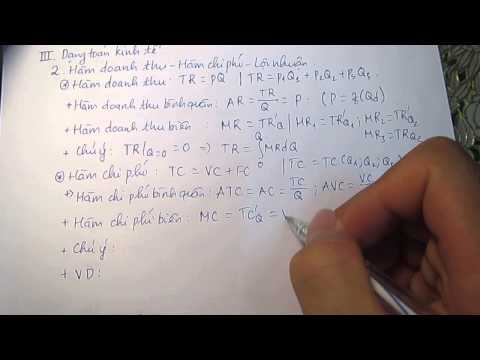 III. Dạng toán kinh tế
2. Hàm doanh thu - Hàm chi phí - Lợi nhuận.
⊛ Hàm doanh thu: TR = PQ | TR = P₁Q₁ + P₂Q₂ + P₃Q₃.
+ Hàm doanh thu bình quân: AR = TR/Q = P. (P = f(Qd)
+ Hàm doanh thu biên: MR = TR'Q | MR₁ = TR'Q₁; MR₂ = TR'Q₂
MR₃ = TR'Q₃
+ Chú ý: TR|Q=0 = 0 ⇒ TR = ∫₀^Q MR dQ
⊛ Hàm chi phí: TC = VC + FC | TC = TC(Q₁, Q₂, Q
+ Hàm chi phí bình quân: ATC = AC = TC/Q; AVC = VC
+ Hàm chi phí biên: MC = TC'Q =
+ Chú ý:
+ VD: